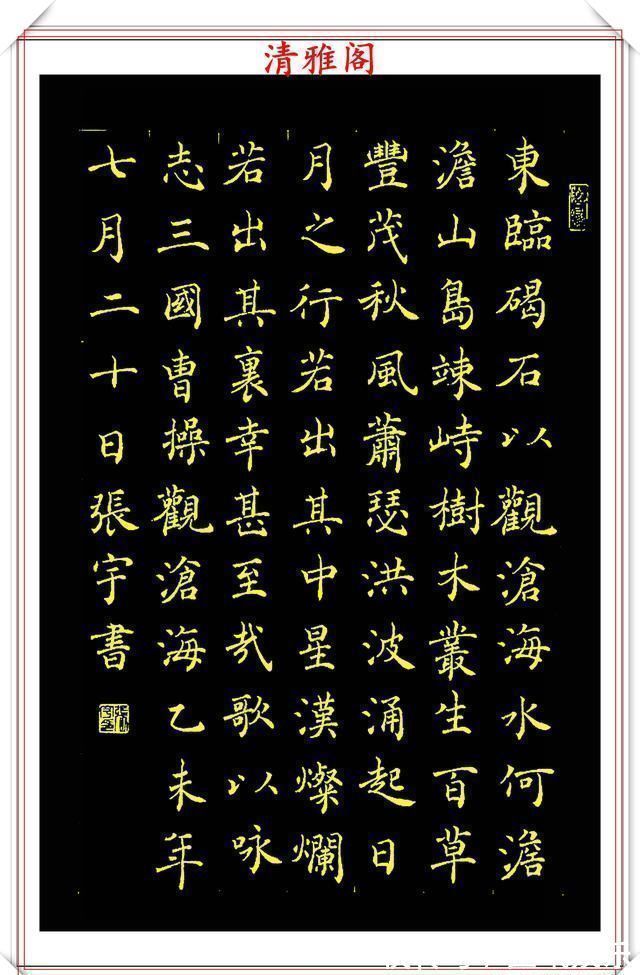 清雅阁
東臨碣石以觀滄海水何澹
澹山島竦峙樹木叢生百草
豐茂秋風蕭瑟洪波涌起日
月之行若出其中星漢燦爛
若出其裏幸甚至哉歌以咏
志三國曹操觀滄海乙未年
七月二十日張宇書